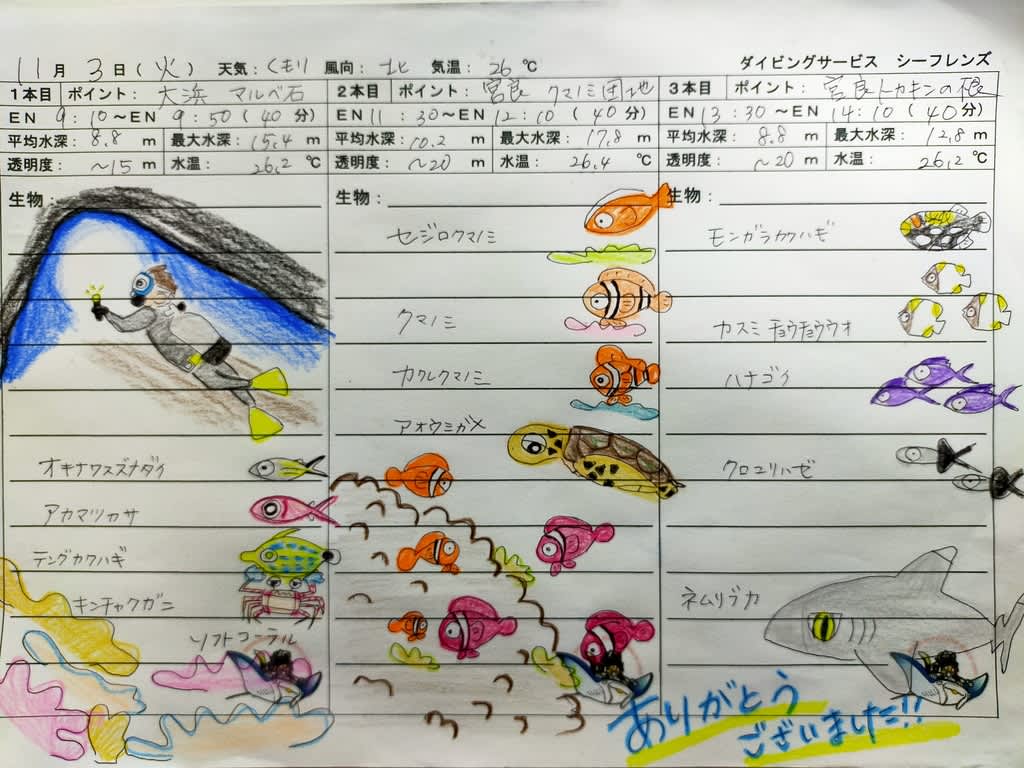 11月 3日(火) 天気:くもり 風向:北 気温:26℃ ダイビングサービス シーフレンズ
1本目 ポイント:大浜 マルベ石
EN 9:10〜EN 9:50(40分)
平均水深:8.8 m 最大水深:15.4 m
透明度:〜15 m 水温:26.2 ℃
生物:
オキナワスズメダイ
アカマツカサ
テングカワハギ
キンチャクガニ
ソフトコーラル
2本目 ポイント:宮良 クマノミ団地
EN 11:30〜EN 12:10(40分)
平均水深:10.2 m 最大水深:17.8 m
透明度:〜20 m 水温:26.4 ℃
生物:
セジロクマノミ
クマノミ
カクレクマノミ
アオウミガメ
3本目 ポイント:宮良トカキンの根
EN 13:30〜EN 14:10(40分)
平均水深:8.8 m 最大水深:12.8 m
透明度:〜20 m 水温:26.2 ℃
生物:
モンガラカワハギ
カスミチョウチョウウオ
ハナゴイ
クロユリハゼ
ネムリブカ
ありがとう
ございました!!